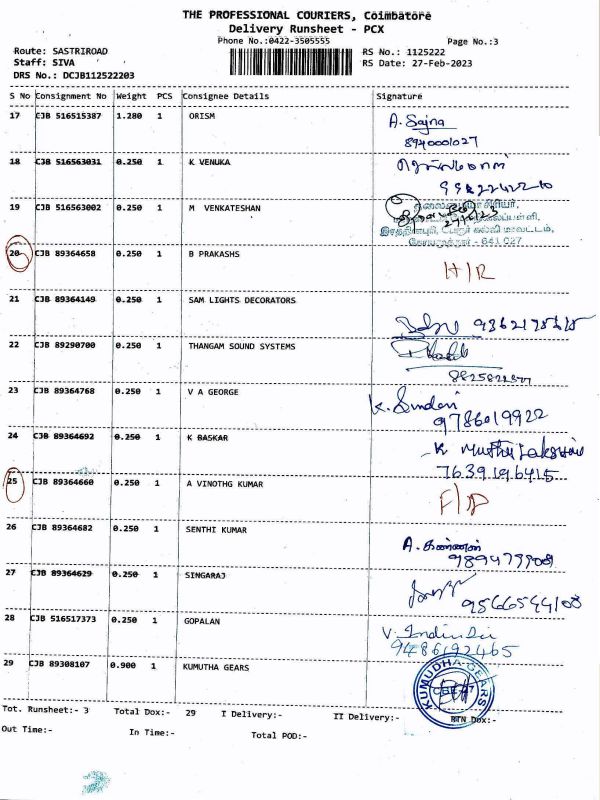 THE PROFESSIONAL COURIERS, Coimbatore
Delivery Runsheet - PCX
Phone No.:0422-3505555
Page No.:3
Route: SASTRIROAD
RS No.: 1125222
Staff: SIVA
RS Date: 27-Feb-2023
DRS No.: DCJB112522203
S No Consignment No Weight PCS Consignee Details Signature
17 CJB 516515387 1.280 1 ORISM A. Sajna
8940001027
18 CJB 516563031 0.250 1 K VENUKA
19 CJB 516563002 0.250 1 M VENKATESHAN
கோயமுத்தூர் - 641 027
20 CJB 89364658 0.250 1 B PRAKASHS H/R
21 CJB 89364149 0.250 1 SAM LIGHTS DECORATORS
22 CJB 89290700 0.250 1 THANGAM SOUND SYSTEMS
23 CJB 89364768 0.250 1 V A GEORGE K. Sundari
9786019922
24 CJB 89364692 0.250 1 K BASKAR K Muthu Lakshmi
7639196415
25 CJB 89364660 0.250 1 A VINOTHG KUMAR
26 CJB 89364682 0.250 1 SENTHI KUMAR A. கண்ணன்
27 CJB 89364629 0.250 1 SINGARAJ
28 CJB 516517373 0.250 1 GOPALAN
9486192465
29 CJB 89308107 0.900 1 KUMUTHA GEARS
KUMUDHA GEARS
Tot. Runsheet:- 3 Total Dox:- 29 I Delivery:- II Delivery:- RTN Dox:-
Out Time:- In Time:- Total POD:-